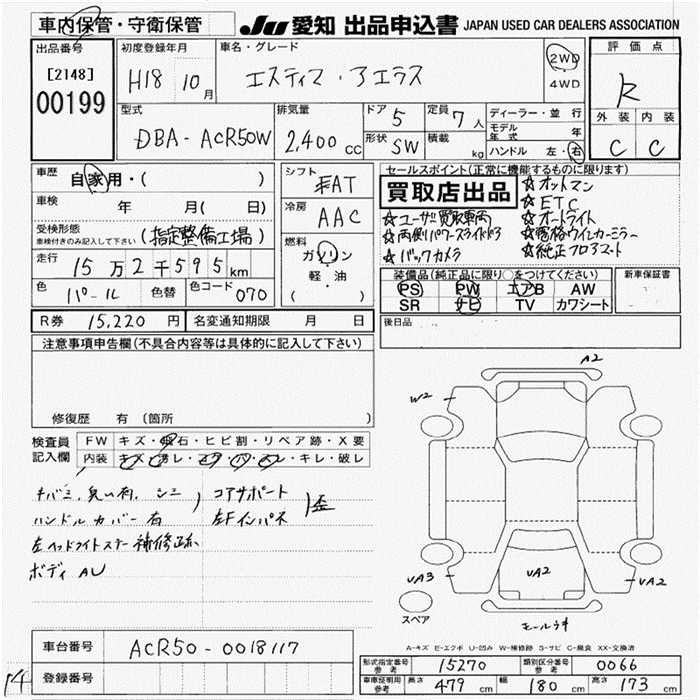 車内保管・守衛保管
JU 愛知 出品申込書 JAPAN USED CAR DEALERS ASSOCIATION
出品番号
[2148]
00199
初度登録年月
H18 10月
車名・グレード
エスティマ・アエラス
2WD
4WD
評価点
R
外装 内装
C C
型式
DBA-ACR50W
排気量
2,400 CC
ドア 5
形状 SW
定員 7人
積載 kg
ディーラー・並行
モデル年式 年
ハンドル 左・右
車歴
自家用・( )
車検 年 月( 日)
受検形態
車検付きのみ記入して下さい
(指定整備工場)
走行 15万2千595km
色 パール 色替 色コード 070
シフト
FAT
冷房
AAC
燃料
ガソリン
軽・油
( )
セールスポイント(正常に機能するものに限ります)
買取店出品
☆オットマン
☆ETC
☆ユーザー買取車両
☆オートライト
☆両側パワースライドドア
☆電格ウインカーミラー
☆バックカメラ
☆純正フロアマット
装備品(純正品に限り○をつけてください)
PS PW エアB AW
SR ナビ TV カワシート
新車保証書
R券 15,220円 名変通知期限 月 日
後日品
注意事項申告欄(不具合内容等は具体的に記入して下さい)
修復歴 有(箇所
検査員記入欄
FW キズ・飛石・ヒビ割・リペア跡・X要
内装 キズ・汚レ・コゲ・穴・スレ・キレ・破レ
キバミ, 臭い有, シミ
ハンドルカバー有
左ヘッドライトステー補修跡
ボディAU
コアサポート
左Fインパネ
歪
A2
W2
UA3
UA2
UA2
スペア
モールうき
A-キズ E-エクボ U-凹み W-補修跡 S-サビ C-腐食 XX-交換済
車台番号 ACR50-0018117
登録番号
14
形式指定番号 参考 15270 類別区分番号 参考 0066
車庫証明用 参考 長さ 479cm 幅 180cm 高さ 173cm